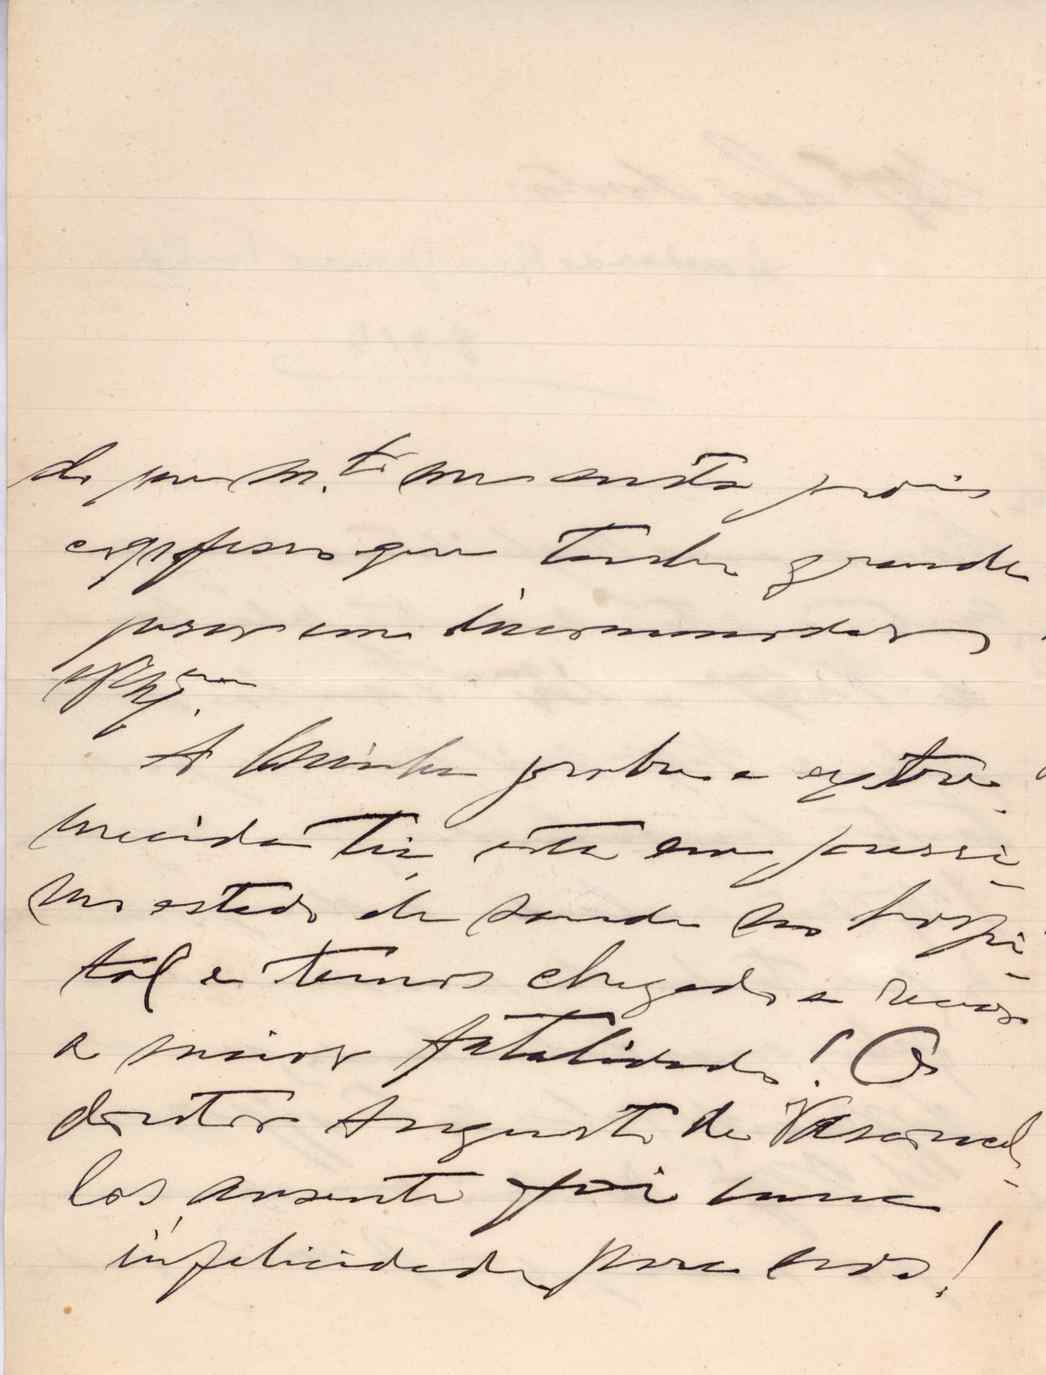 de que m.to me custa pois
confesso que tenho grande
pesar em incommodar
V. Ex.cia
A minha pobre e extre-
mecida tia está em pessi-
mo estado de saude no hospi-
tal e temos chegado a recear
a maior fatalidade! O
doutor Augusto de Vasconcel-
los ausente foi uma
infelicidade para nós!